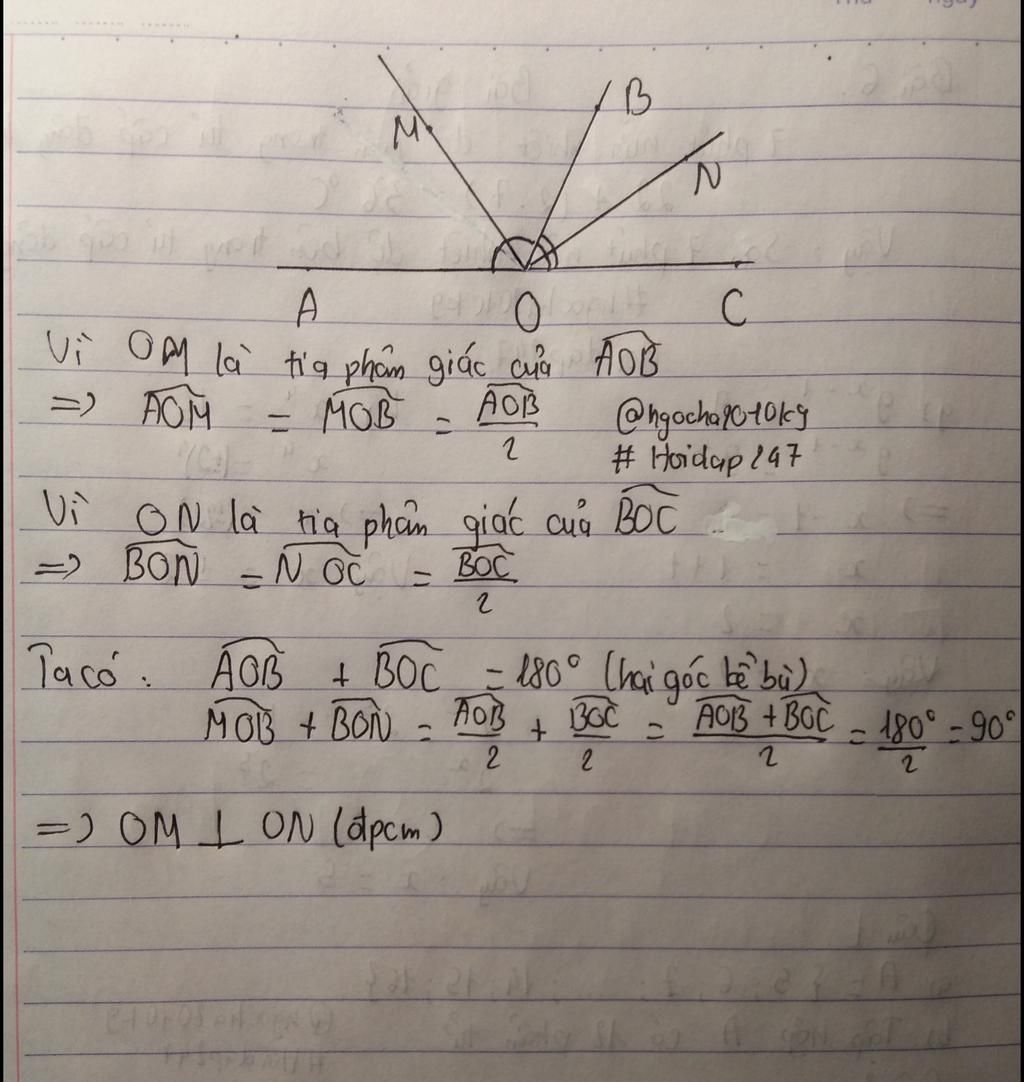 M
B
N
A O C
Vì OM là tia phân giác của AOB
=> AOM = MOB = AOB/2
@ngocha9010kg
# Hoidap247
Vì ON là tia phân giác của BOC
=> BON = NOC = BOC/2
Ta có : AOB + BOC = 180° (hai góc kề bù)
MOB + BON = AOB/2 + BOC/2 = AOB + BOC/2 = 180°/2 = 90°
=> OM ⊥ ON (đpcm)